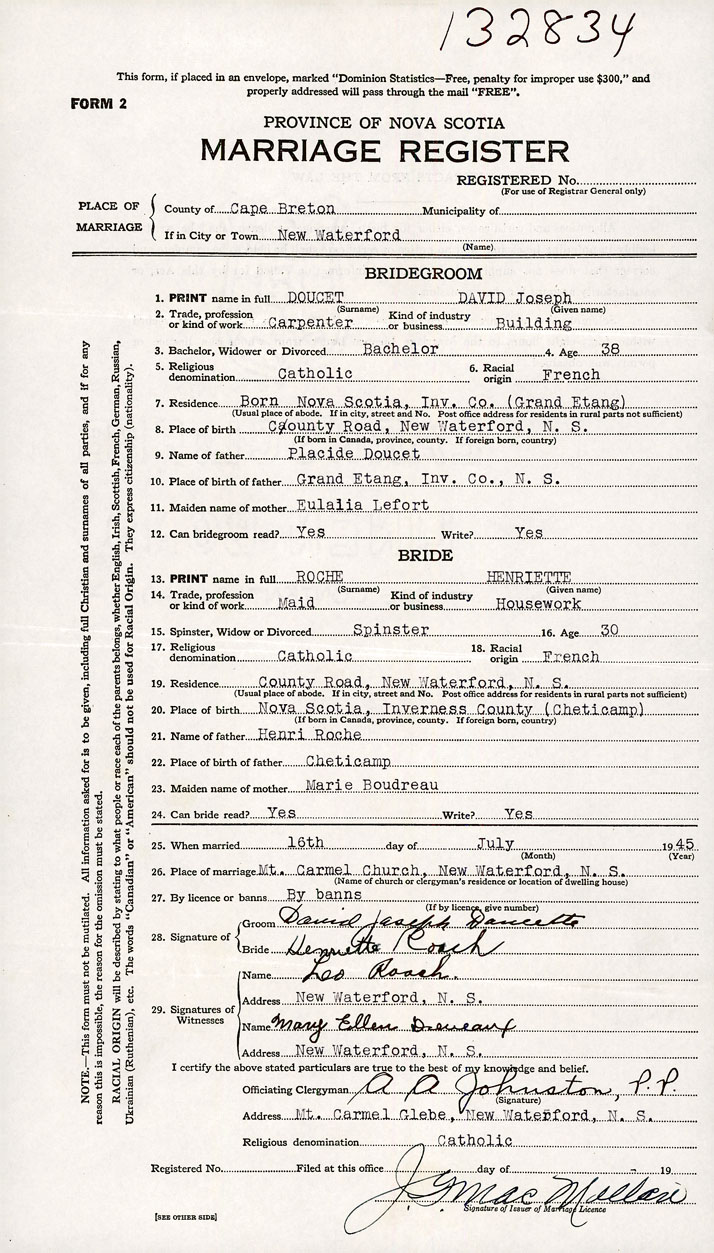 132834
This form, if placed in an envelope, marked "Dominion Statistics—Free, penalty for improper use $300," and
properly addressed will pass through the mail "FREE".
FORM 2
PROVINCE OF NOVA SCOTIA
MARRIAGE REGISTER
REGISTERED No.
(For use of Registrar General only)
PLACE OF MARRIAGE
County of Cape Breton Municipality of
If in City or Town New Waterford
(Name)
BRIDEGROOM
1. PRINT name in full DOUCET DAVID Joseph
(Surname) (Given name)
2. Trade, profession or kind of work Carpenter Kind of industry or business Building
3. Bachelor, Widower or Divorced Bachelor 4. Age 38
5. Religious denomination Catholic 6. Racial origin French
7. Residence Born Nova Scotia, Inv. Co. (Grand Etang)
(Usual place of abode. If in city, street and No. Post office address for residents in rural parts not sufficient)
8. Place of birth County Road, New Waterford, N. S.
(If born in Canada, province, county. If foreign born, country)
9. Name of father Placide Doucet
10. Place of birth of father Grand Etang, Inv. Co., N. S.
11. Maiden name of mother Eulalia Lefort
12. Can bridegroom read? Yes Write? Yes
BRIDE
13. PRINT name in full ROCHE HENRIETTE
(Surname) (Given name)
14. Trade, profession or kind of work Maid Kind of industry or business Housework
15. Spinster, Widow or Divorced Spinster 16. Age 30
17. Religious denomination Catholic 18. Racial origin French
19. Residence County Road, New Waterford, N. S.
(Usual place of abode. If in city, street and No. Post office address for residents in rural parts not sufficient)
20. Place of birth Nova Scotia, Inverness County (Cheticamp)
(If born in Canada, province, county. If foreign born, country)
21. Name of father Henri Roche
22. Place of birth of father Cheticamp
23. Maiden name of mother Marie Boudreau
24. Can bride read? Yes Write? Yes
25. When married 16th day of July 1945
(Month) (Year)
26. Place of marriage Mt. Carmel Church, New Waterford, N. S.
(Name of church or clergyman's residence or location of dwelling house)
27. By licence or banns By banns
(If by licence, give number)
28. Signature of
Groom David Joseph Doucette
Bride Henriette Roach
29. Signatures of Witnesses
Name Leo Roach.
Address New Waterford, N. S.
Name Mary Ellen
Address New Waterford, N. S.
I certify the above stated particulars are true to the best of my knowledge and belief.
Officiating Clergyman A A Johnston, P.P.
(Signature)
Address Mt. Carmel Glebe, New Waterford, N. S.
Religious denomination Catholic
Registered No. Filed at this office day of 19
J G Mac
Signature of Issuer of Marriage Licence
[SEE OTHER SIDE]
NOTE.—This form must not be mutilated. All information asked for is to be given, including full Christian and surnames of all parties, and if for any
reason this is impossible, the reason for the omission must be stated.
RACIAL ORIGIN will be described by stating to what people or race each of the parents belongs, whether English, Irish, Scottish, French, German, Russian,
Ukrainian (Ruthenian), etc. The words "Canadian" or "American" should not be used for Racial Origin. They express citizenship (nationality).